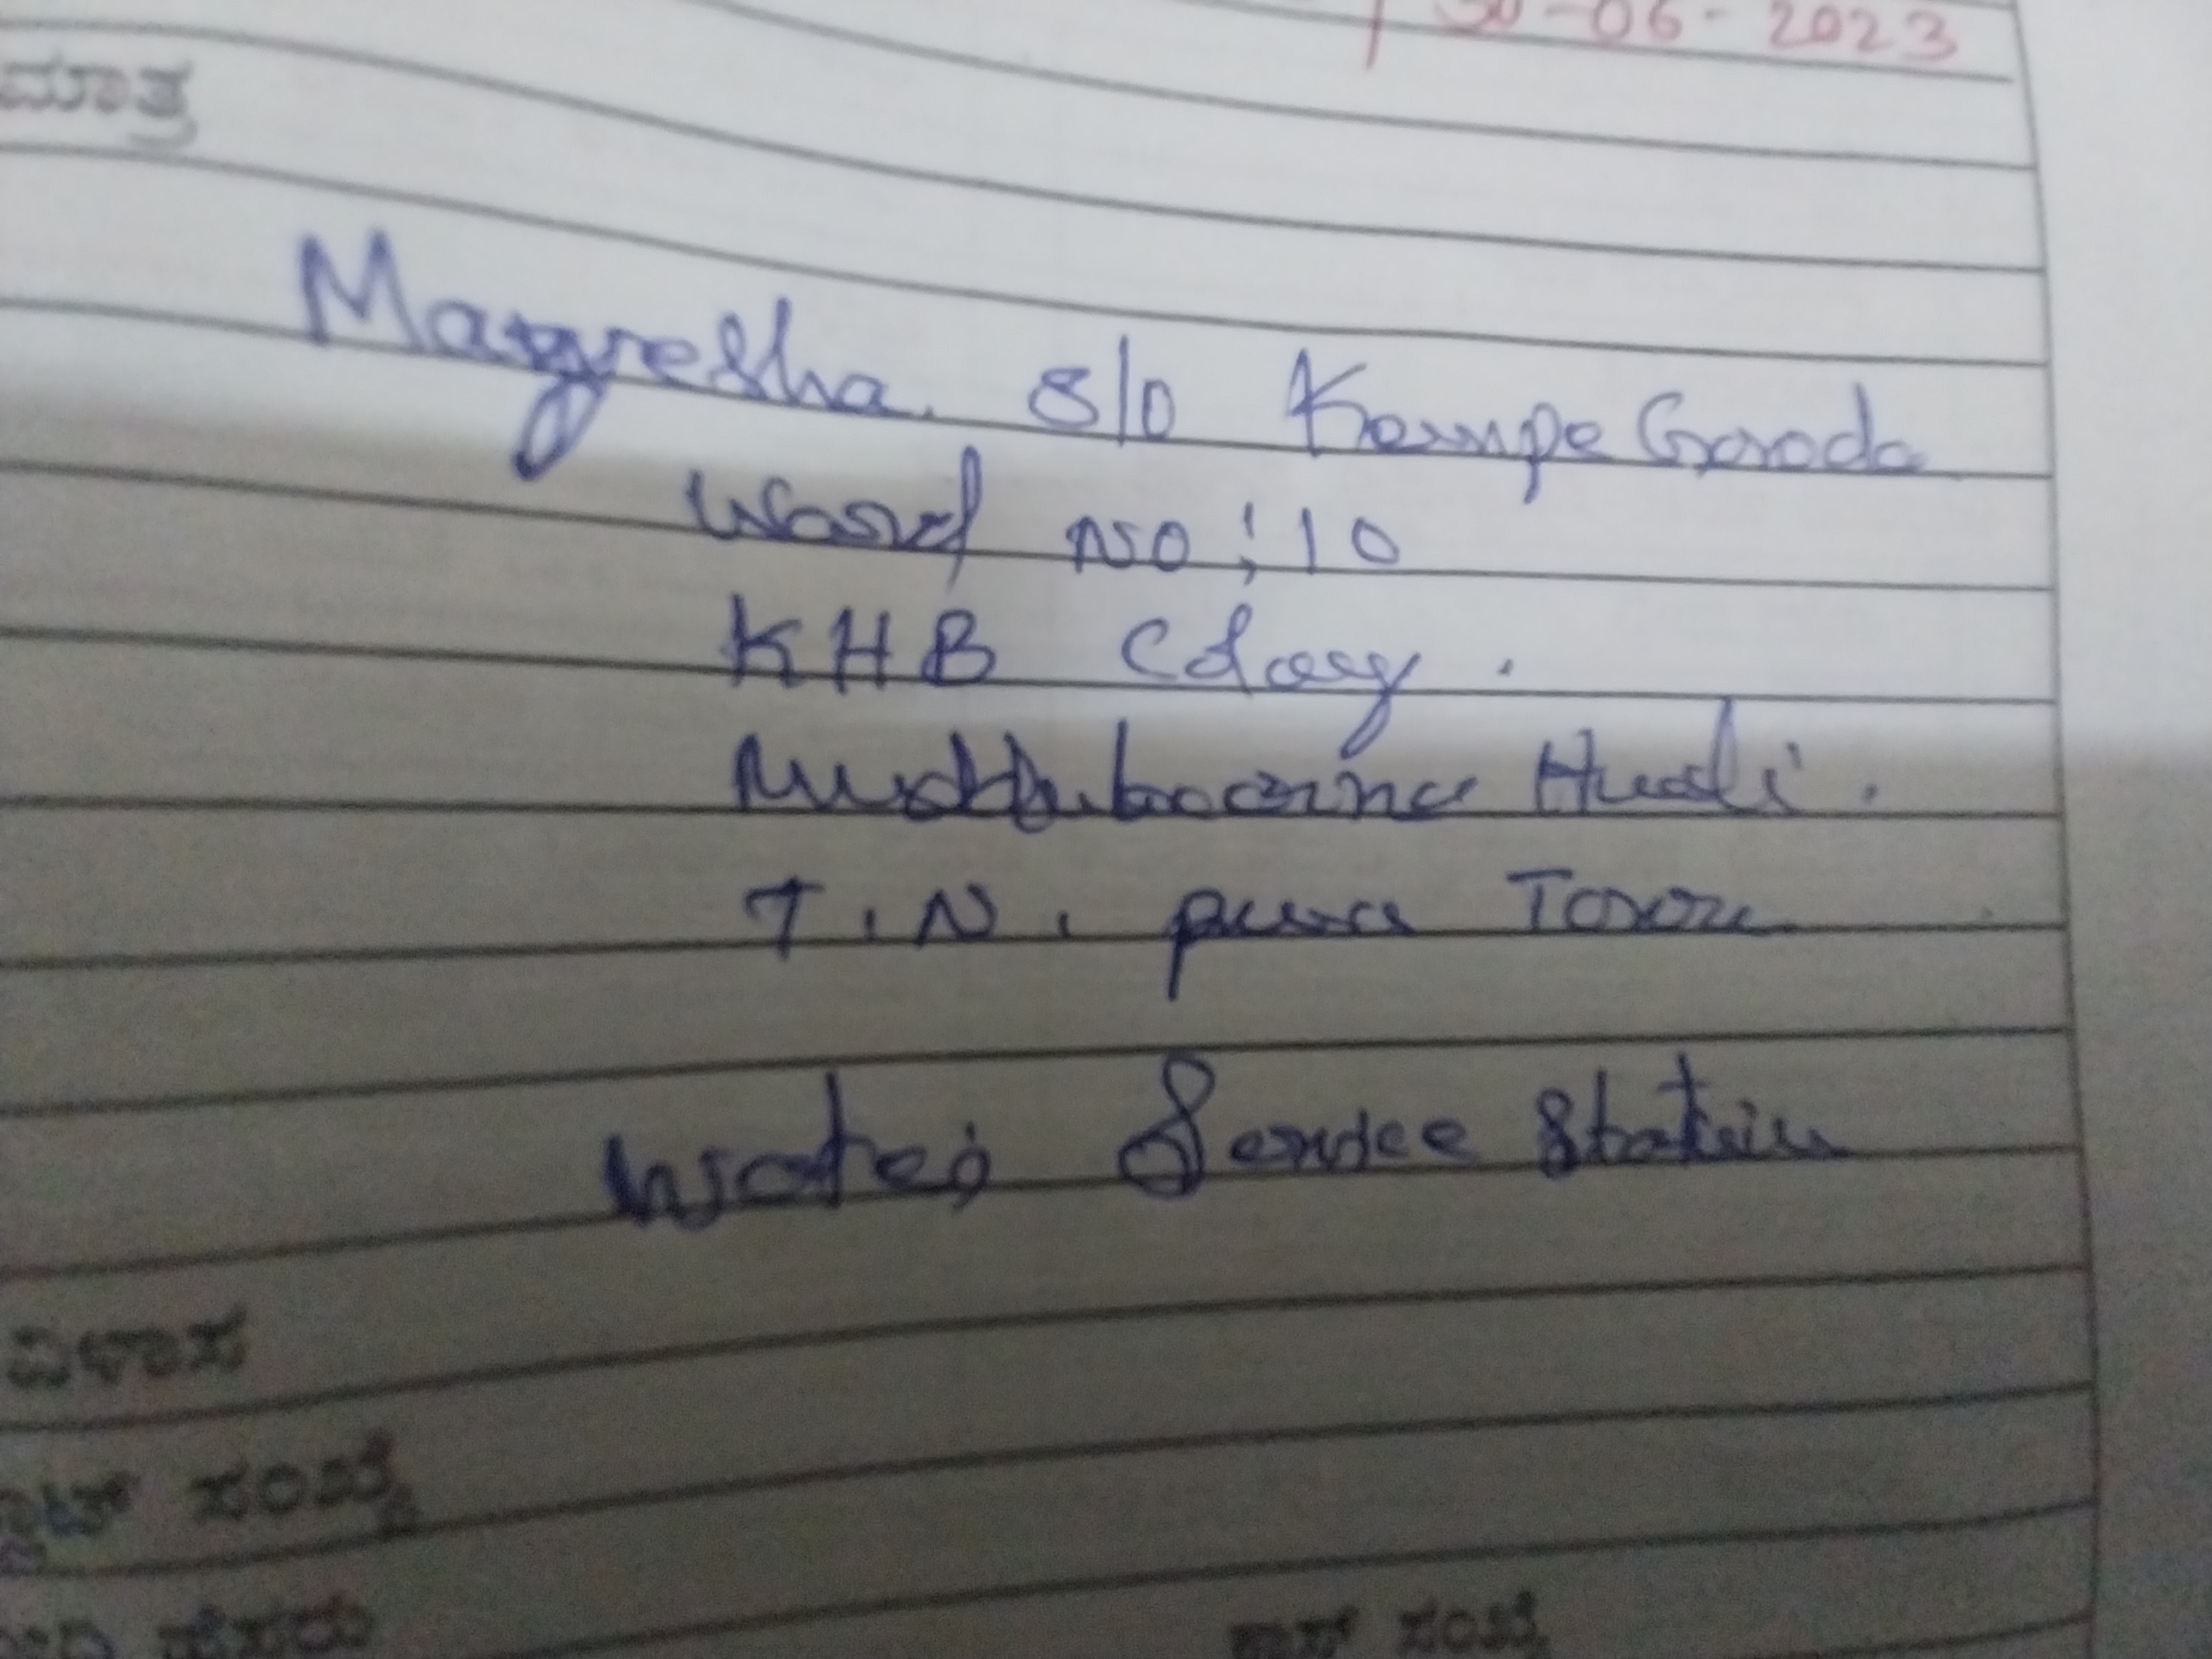 30-06-2023
ಮಾತ್ರ
Magresha. S/o Kempe Gowda
Ward no: 10
KHB Colony.
Hundi.
T. N. pura Town
Water Service Station
ವಿಳಾಸ
ಸಂಖ್ಯೆ
ಹೆಸರು
ಸಂಖ್ಯೆ